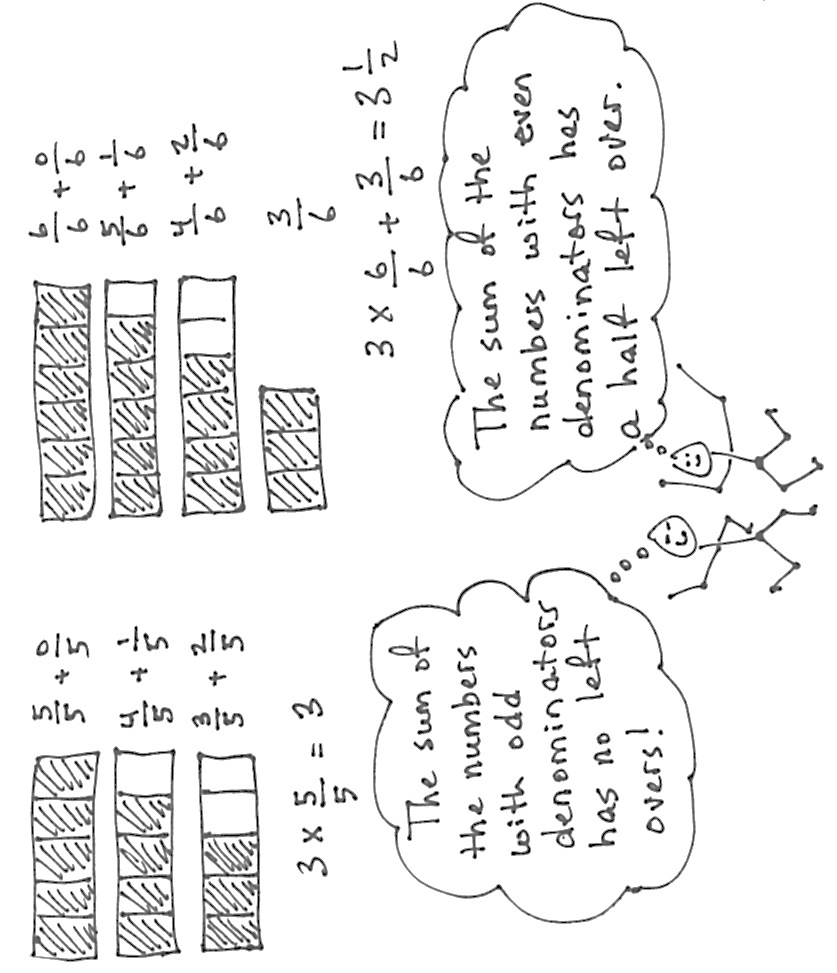 5/5 + 0/5
4/5 + 1/5
3/5 + 2/5
3 × 5/5 = 3
The sum of
the numbers
with odd
denominators
has no left
overs!
6/6 + 0/6
5/6 + 1/6
4/6 + 2/6
3/6
3 × 6/6 + 3/6 = 3 1/2
The sum of the
numbers with even
denominators has
a half left over.